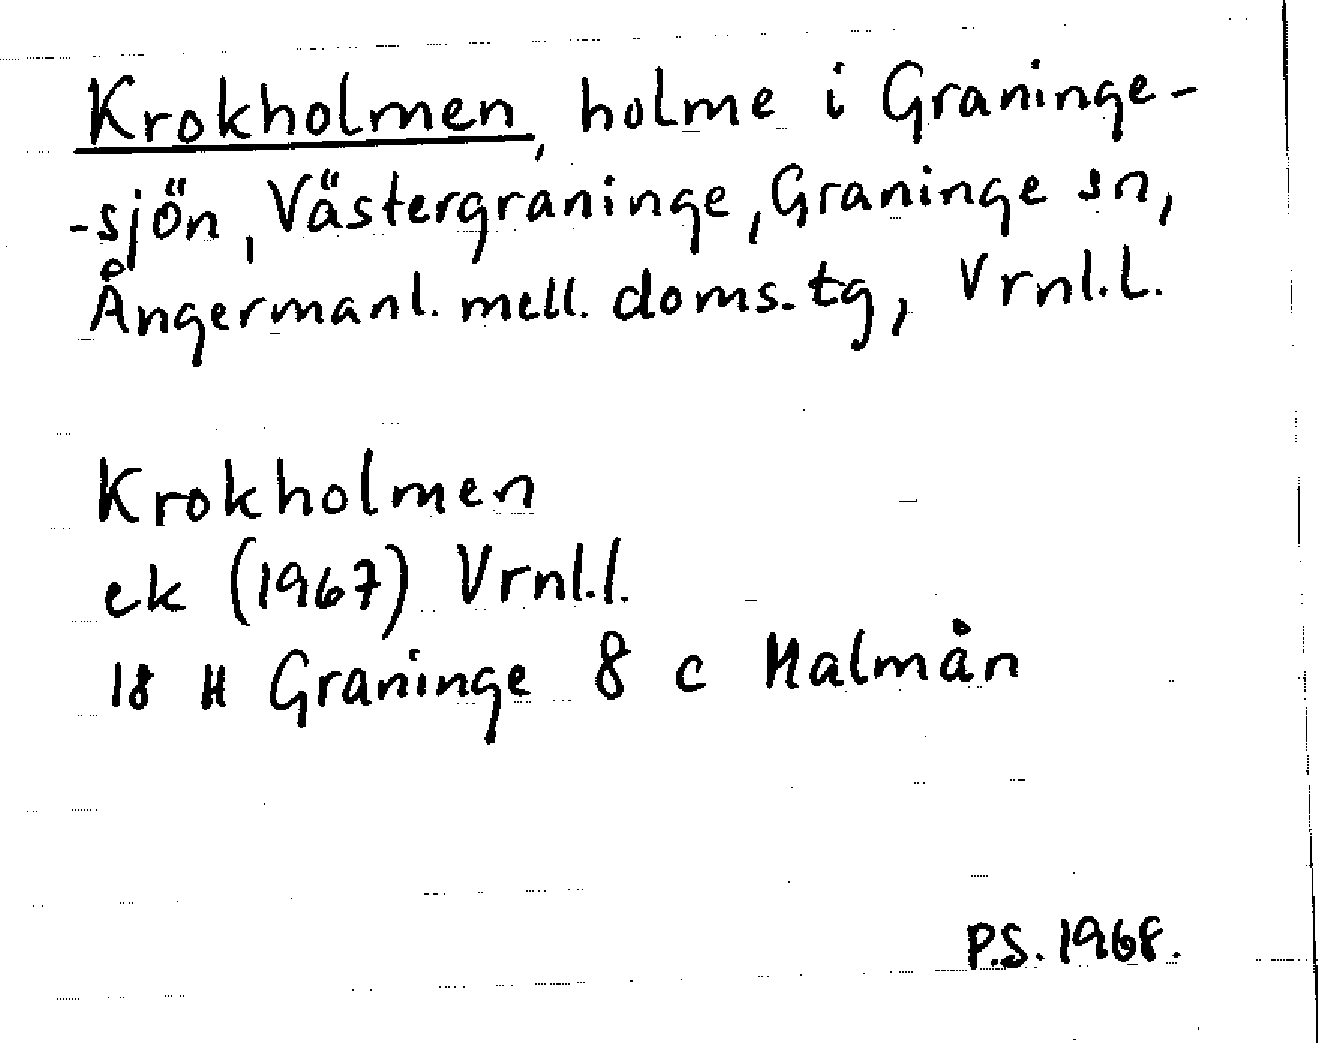 Krokholmen, holme i Graninge-
-sjön, Västergraninge, Graninge sn,
Ångermanl. mell. doms. tg, Vrnl.l.
Krokholmen
ek (1967) Vrnl.l.
18 H Graninge 8 c Malmån
P.S. 1968.